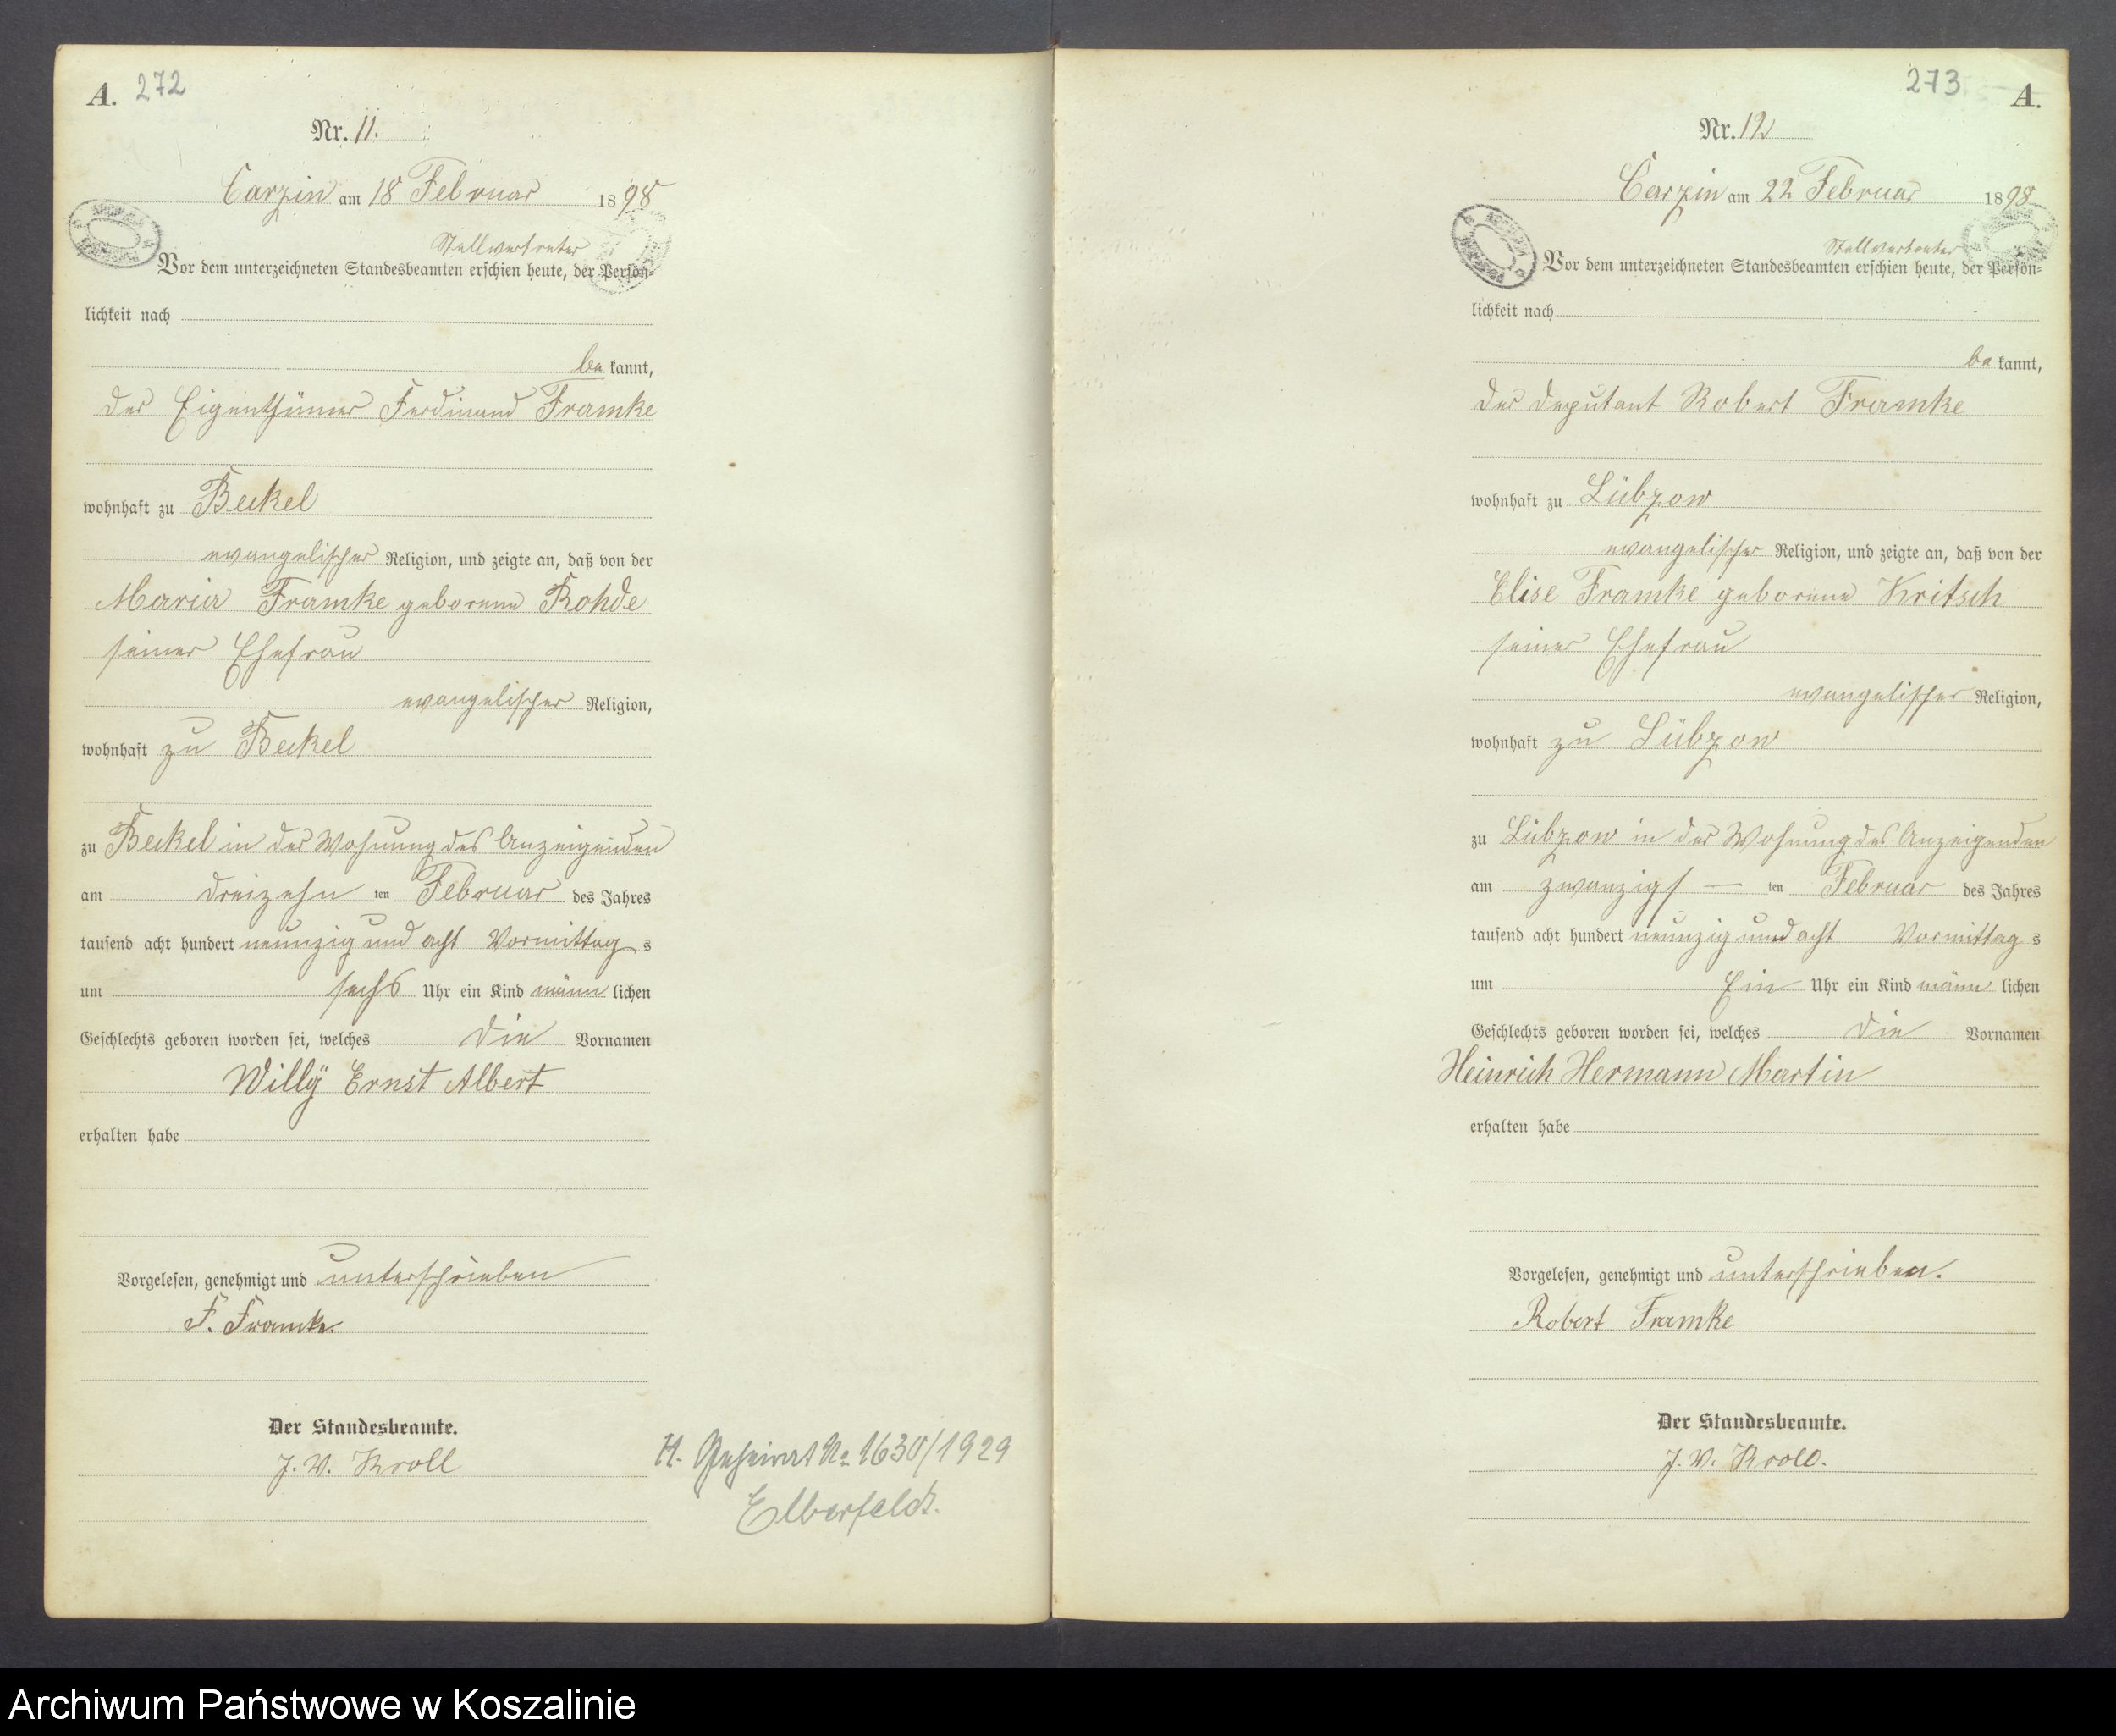 A. 272
Nr. 11.
Carzin am 18 Februar 1898
Stellvertreter
Vor dem unterzeichneten Standesbeamten erschien heute, der Persön-
lichkeit nach
be kannt,
der Eigenthümer Ferdinand Framke
wohnhaft zu Beckel
evangelischer Religion, und zeigte an, daß von der
Maria Framke geborene Rohde
seiner Ehefrau
evangelischer Religion,
wohnhaft zu Beckel
zu Beckel in der Wohnung des Anzeigenden
am dreizehn ten Februar des Jahres
tausend acht hundert neunzig und acht Vormittag s
um sechs Uhr ein Kind männ lichen
Geschlechts geboren worden sei, welches die Vornamen
Willÿ Ernst Albert
erhalten habe
Vorgelesen, genehmigt und unterschrieben
F. Framke.
Der Standesbeamte.
J. V. Kroll
H. Geheirat No 1630/1929
Elberfeld.
273 A.
Nr. 12
Carzin am 22 Februar 1898
Stellvertreter
Vor dem unterzeichneten Standesbeamten erschien heute, der Persön-
lichkeit nach
be kannt,
der Deputant Robert Framke
wohnhaft zu Lübzow
evangelischer Religion, und zeigte an, daß von der
Elise Framke geborene Kritsch
seiner Ehefrau
evangelischer Religion,
wohnhaft zu Lübzow
zu Lübzow in der Wohnung des Anzeigenden
am zwanzigs — ten Februar des Jahres
tausend acht hundert neunzig und acht Vormittag s
um Ein Uhr ein Kind männ lichen
Geschlechts geboren worden sei, welches die Vornamen
Heinrich Hermann Martin
erhalten habe
Vorgelesen, genehmigt und unterschrieben.
Robert Framke
Der Standesbeamte.
J. V. Kroll.
Archiwum Państwowe w Koszalinie